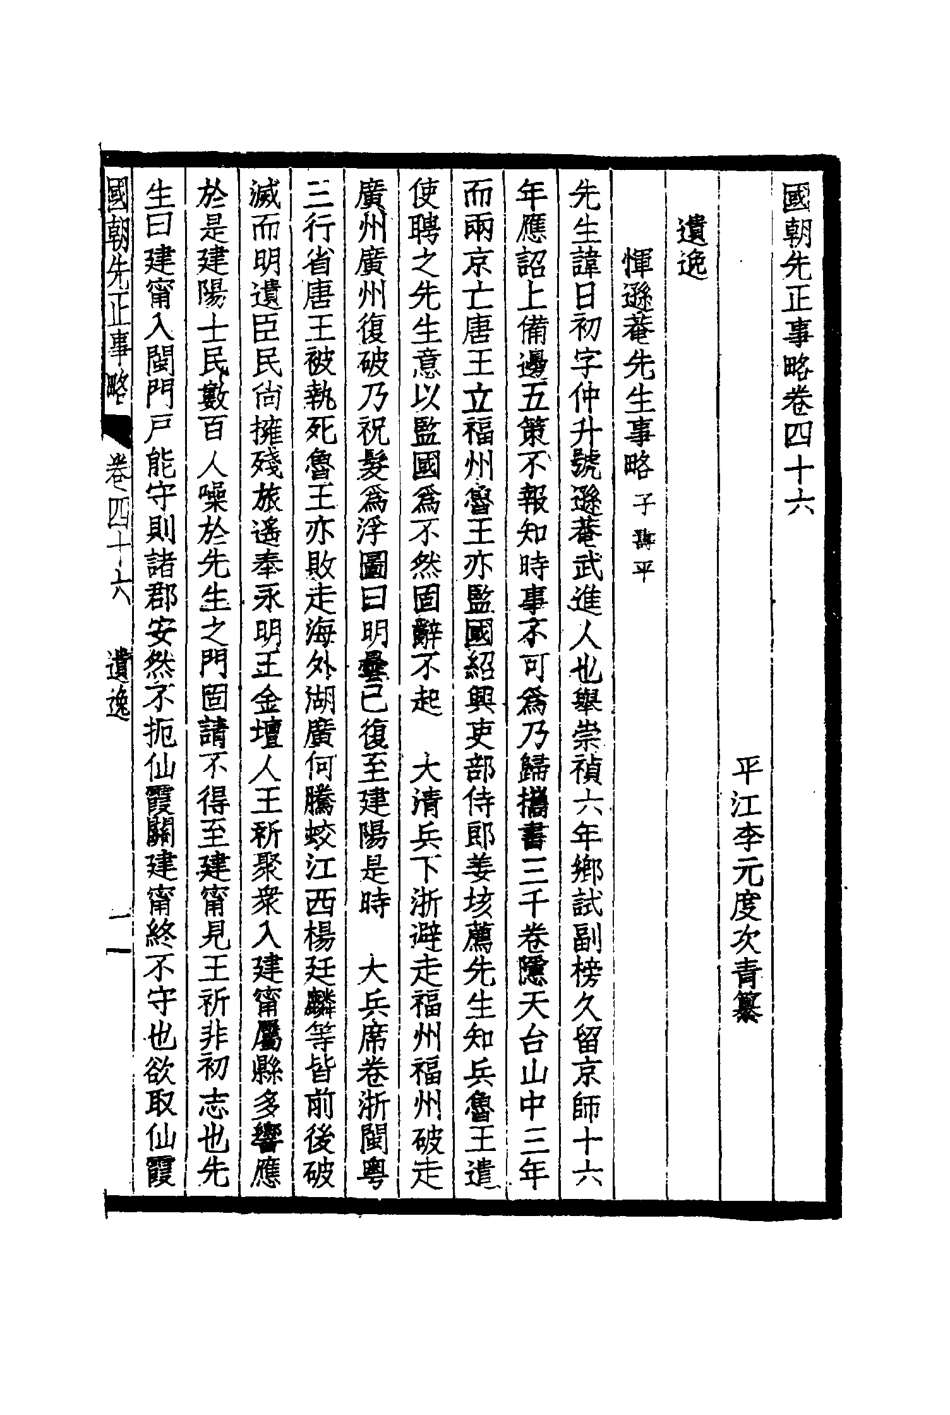 國朝先正事略卷四十六
平江李元度次青纂
遺逸
惲遜菴先生事略子壽平
先生諱日初字仲升號遜菴武進人也舉崇禎六年鄉試副榜久留京師十六
年應詔上備邊五策不報知時事不可爲乃歸攜書三千卷隱天台山中三年
而兩京亡唐王立福州魯王亦監國紹興吏部侍郎姜垓薦先生知兵魯王遣
使聘之先生意以監國爲不然固辭不起 大清兵下浙避走福州福州破走
廣州廣州復破乃祝髮爲浮圖曰明曇已復至建陽是時 大兵席卷浙閩粵
三行省唐王被執死魯王亦敗走海外湖廣何騰蛟江西楊廷麟等皆前後破
滅而明遺臣民尙擁殘旅遙奉永明王金壇人王祈聚衆入建甯屬縣多響應
於是建陽士民數百人噪於先生之門固請不得至建甯見王祈非初志也先
生曰建甯入閩門戶能守則諸郡安然不扼仙霞關建甯終不守也欲取仙霞
國朝先正事略 卷四十六 遺逸 一